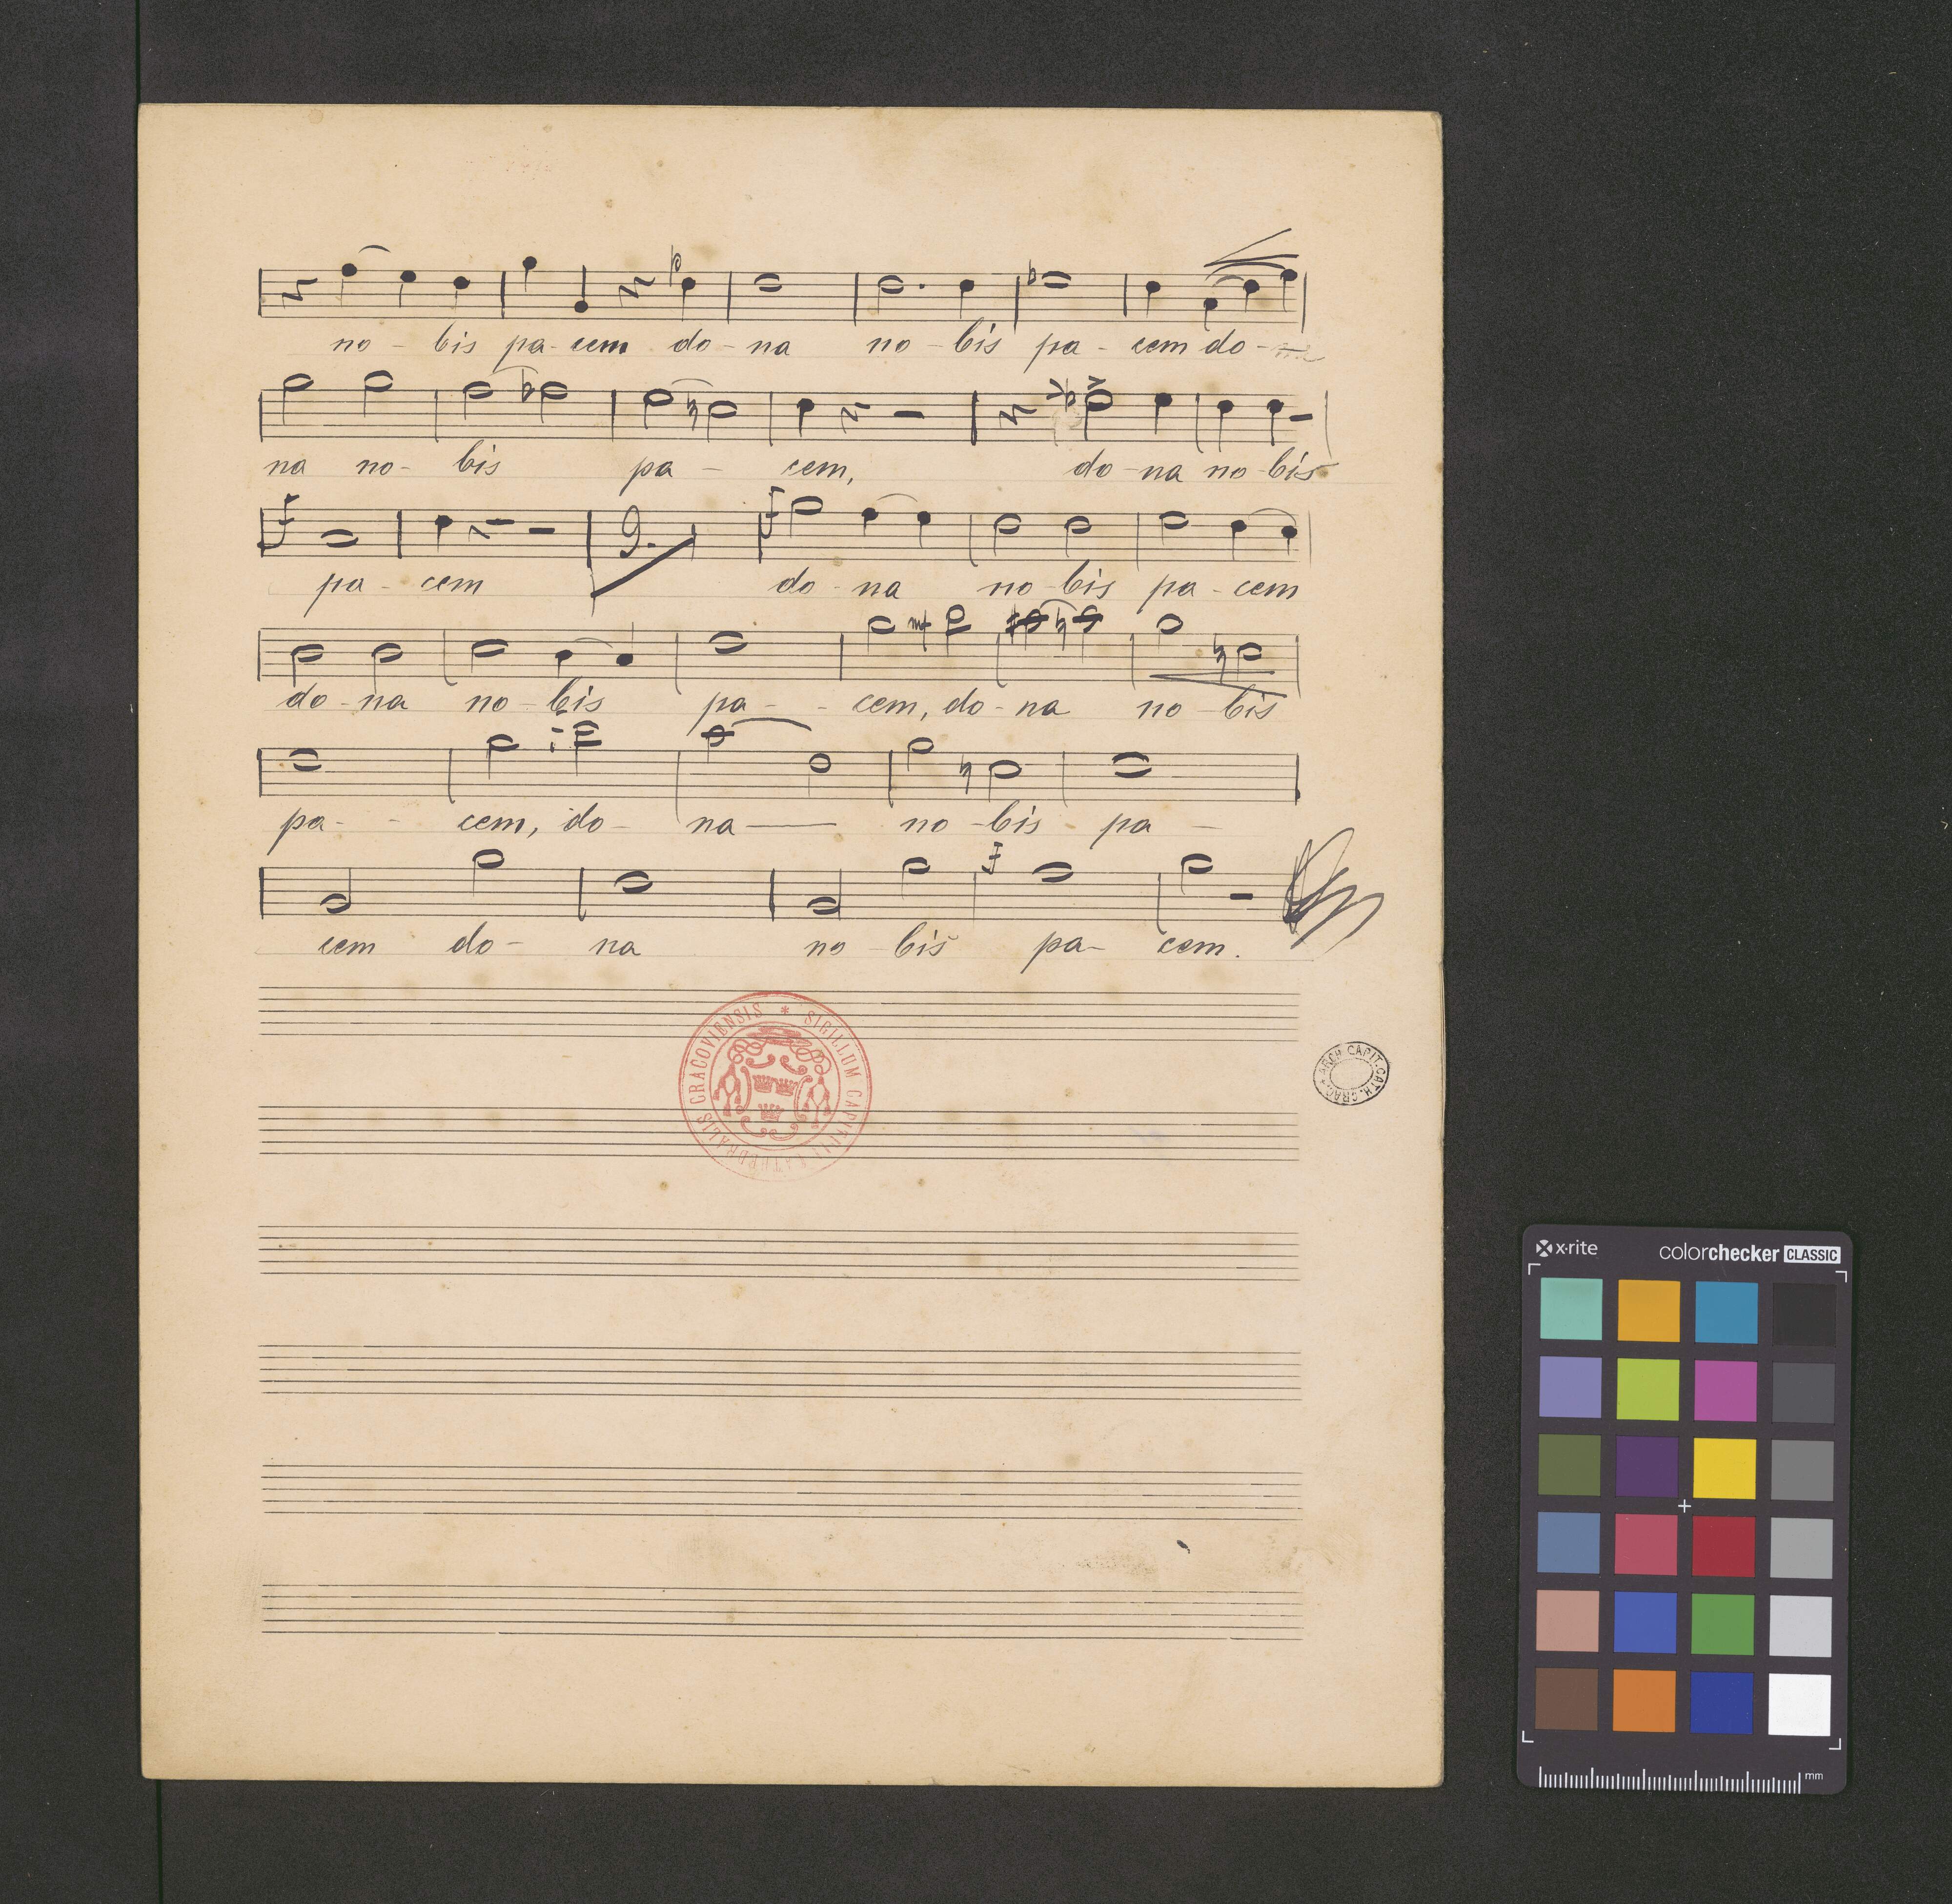 p
no - bis pa - cem do - na no - bis pa - cem do -
na no - bis pa - cem, do - na no - bis
f
9.
f
pa - cem do - na no bis pa - cem
mf
do - na no - bis pa - - cem, do - na no - bis
pa - - cem, do - na no - bis pa -
f
cem do - na no - bis pa - cem.
* SIGILLUM CAPITULI CATHEDRALIS CRACOVIENSIS
ARCH. CAPIT. CATH. CRAC. +
x·rite
colorchecker CLASSIC
mm